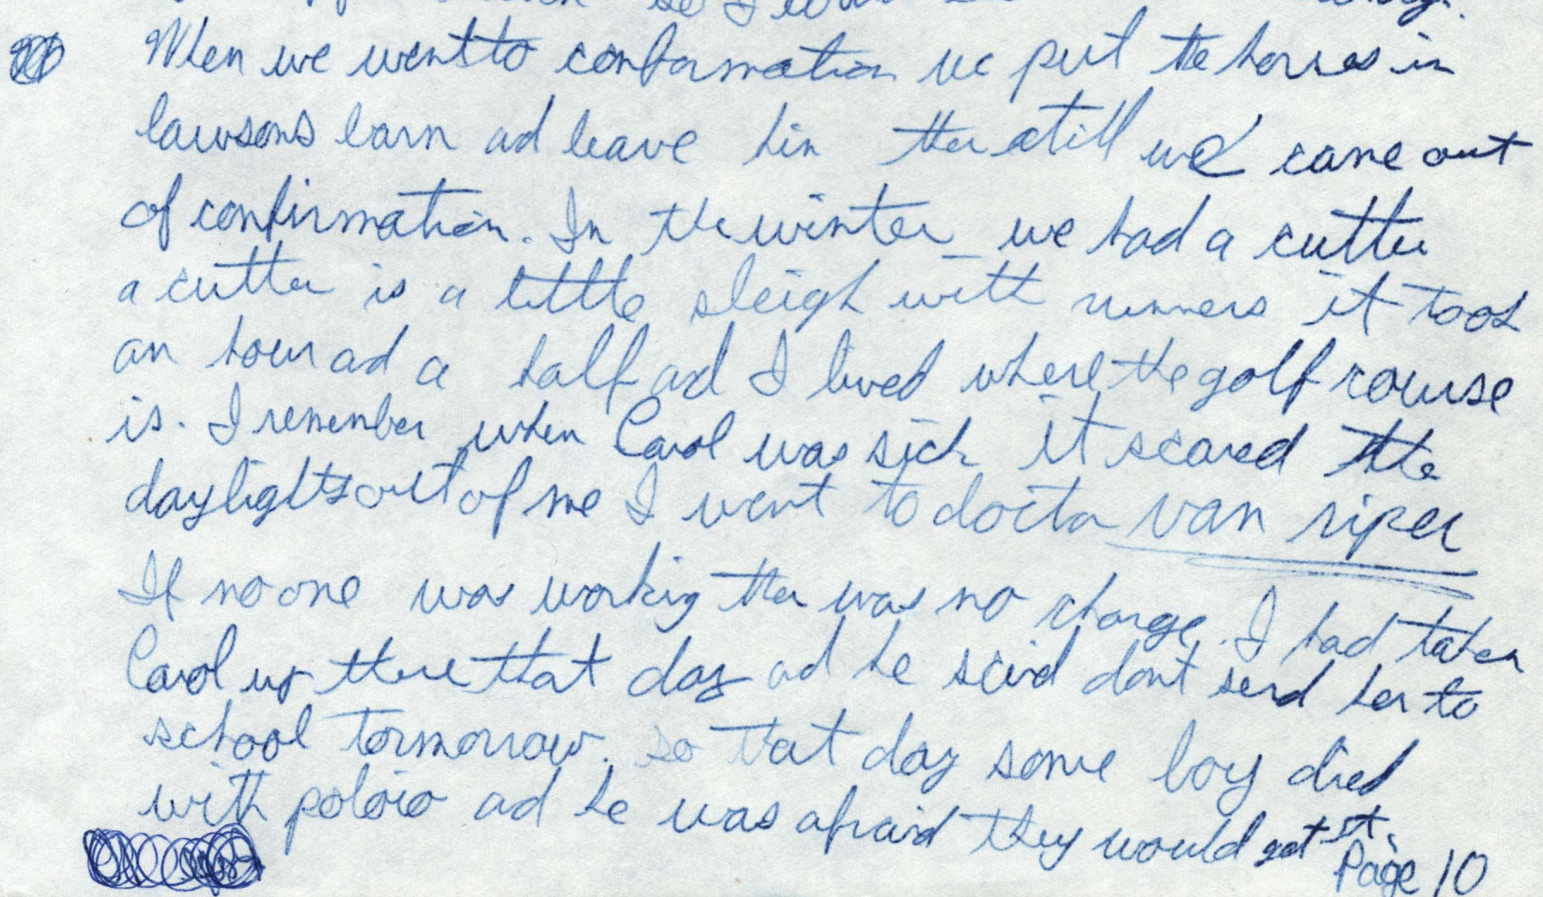 so I
When we went to conformation we put the horses in
lawsons barn ad leave him ther still we came out
of confirmation. In the winter we had a cutter
a cutter is a little sleigh with runners it took
an hour ad a half ad I lived where the golf course
is. I remember when Carol was sick it scared the
daylights out of me I went to doctor van riper
If no one was working ther was no charge. I had taken
Carol up there that day ad he said dont send her to
school tormorrow. so that day some boy died
with poloio ad he was afraid they would get it.
Page 10